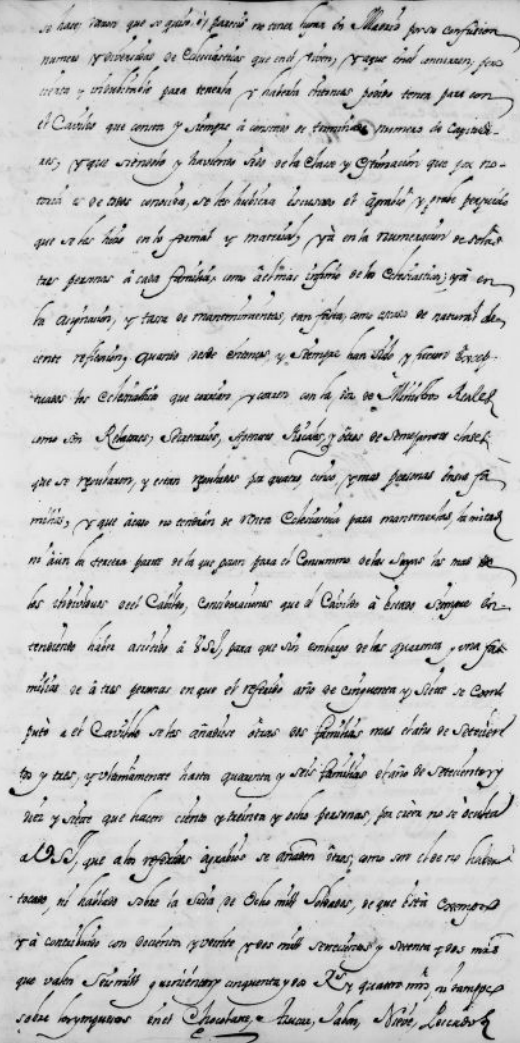 se hace, razon que se quiso, q parecio no tener lugar en Madrid por su confusion
numero y diversidad de Eclesiasticos que en el viven, y aque en el concurren; pero
cierta y indubitable para tenerla y haberla entonces podido tener para con
el Cavildo que consta y siempre à constado de terminado numero de Capitula-
res, y que siendolo y haviendo sido de la Clase y Estimacion que por no-
toria es de todos conocida, se les hubiera escusado el agrabio y grabe perjuicio
que se les hizo en lo formal y material, yà en la numeracion de solas
tres personas à cada familia, como à el mas infimo de los Eclesiasticos; yà en
la asignacion, y tassa de mantenimientos, tan falta, como escaso de natural de-
cente reflexion; quando desde entonces y siempre han sido y fueron Excep-
tuados los Eclesiasticos que corrian, y corren con la de Ministros Reales
como son Relatores, Secretarios, Agentes Fiscales, y otros de semejante clase,
que se regularon, y estan regulados por quatro, cinco, y mas personas en sus fa-
milias, y que àcaso no tendran de renta Eclesiastica para mantenerlas, la mitad
ni àun la tercera parte de la que gozan para el Consummo de las suyas los mas de
los Individuos de el Cabildo, Consideraciones que el Cavildo à estado siempre en-
tendiendo haber asistido à VSI, para que sin embargo de las quarenta y una fa-
milias de à tres personas en que el referido año de cinquenta y siete se Com-
putò a el Cavildo se les añadiese otras dos familias mas el año de setecien-
tos y tres, y ultimamente hasta quarenta y seis familias el año de setecientos y
diez y siete que hacen ciento y treinta y ocho personas, por cierto no se òculta
a VSI, que a los referidos agrabios se añaden otros, como son el de no haber
tocado, ni hablado sobre la Sisa de Ocho mill Soldados, de que està exempto
y à contribuido con docientos y veinte y dos mill setecientos y setenta y dos mrs
que valen Seis mill quinientos y cinquenta y dos Rs y quatro mrs, ni tampoco
sobre los ympuestos en el Chocolate, Azucar, Jabon, Nieve, Pescados